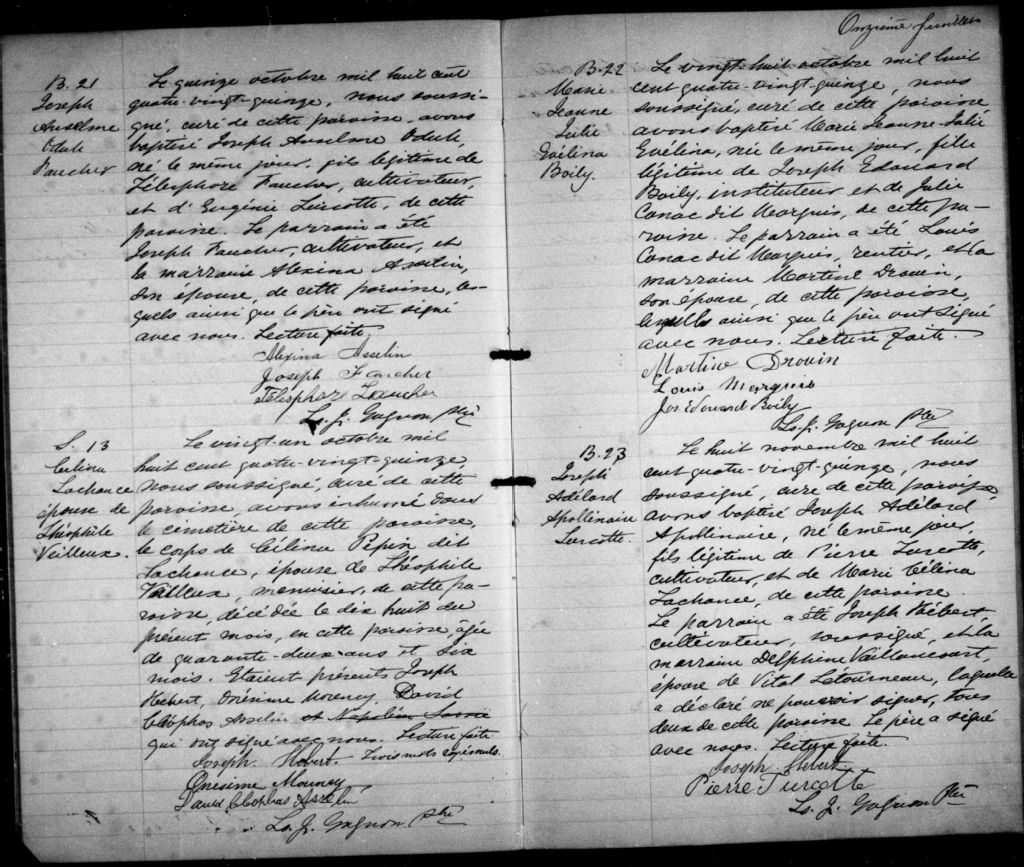 B. 21
Joseph
Anselme
Odule
Faucher
Le quinze octobre mil huit cent
quatre-vingt-quinze, nous soussi-
gné, curé de cette paroisse, avons
baptisé Joseph Anselme Odule
né le même jour, fils légitime de
Télesphore Faucher, cultivateur,
et d'Eugénie Turcotte, de cette
paroisse. Le parrain a été
Joseph Faucher, cultivateur, et
la marraine Alexina Asselin,
son épouse, de cette paroisse, les-
quels ainsi que le père ont signé
avec nous. Lecture faite
Alexina Asselin
Joseph Faucher
Télesphore Faucher
Ls. J. Gagnon ptre
S. 13
Célina
Lachance
épouse de
Théophile
Veilleux.
Le vingt-un octobre mil
huit cent quatre-vingt-quinze
nous soussigné, curé de cette
paroisse, avons inhumé dans
le cimetière de cette paroisse,
le corps de Célina Pépin dit
Lachance, épouse de Théophile
Veilleux, menuisier, de cette pa-
roisse, décédée le dix huit du
présent mois, en cette paroisse, âgée
de quarante-deux-ans et six
mois. Etaient présents Joseph
Hébert, Onésime Morency, David
Cléophas Asselin et Napoléon
qui ont signé avec nous. Lecture faite
Joseph Hebert. Trois mots rayés nuls.
Onesime Mouncy
David Cléophas Asselin
Ls. J. Gagnon ptre
Onzième feuillet
B. 22
Marie
Jeanne
Julie
Evélina
Boily.
Le vingt-huit octobre mil huit
cent quatre-vingt-quinze, nous
soussigné, curé de cette paroisse
avons baptisé Marie Jeanne-Julie
Evélina, née le même jour, fille
légitime de Joseph Edouard
Boily, instituteur et de Julie
Canac dit Marquis, de cette pa-
roisse. Le parrain a été Louis
Canac dit Marquis, rentier, et la
marraine Martine Drouin,
son épouse, de cette paroisse,
lesquels ainsi que le père ont signé
avec nous. Lecture faite.
Martine Drouin
Louis Marquis
Jos. Edouard Boily
Ls. J. Gagnon ptre
B. 23
Joseph
Adélard
Apollinaire
Turcotte.
Le huit novembre mil huit
cent quatre-vingt-quinze, nous
soussigné, curé de cette paroisse,
avons baptisé Joseph Adélard
Apollinaire, né le même jour,
fils légitime de Pierre Turcotte,
cultivateur, et de Marie Célina
Lachance, de cette paroisse.
Le parrain a été Joseph Hébert,
cultivateur, soussigné, et la
marraine Delphine Vaillancourt,
épouse de Vital Létourneau, laquelle
a déclaré ne pouvoir signer, tous
deux de cette paroisse. Le père a signé
avec nous. Lecture faite.
Joseph Hebert
Pierre Turcotte
Ls. J. Gagnon Ptre